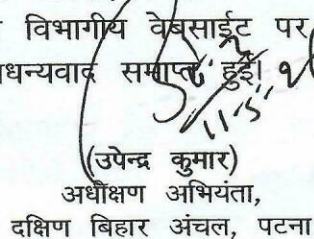 विभागीय वेबसाईट पर
धन्यवाद समाप्त हुई।
11.5
(उपेन्द्र कुमार)
अधीक्षण अभियंता,
दक्षिण बिहार अंचल, पटना